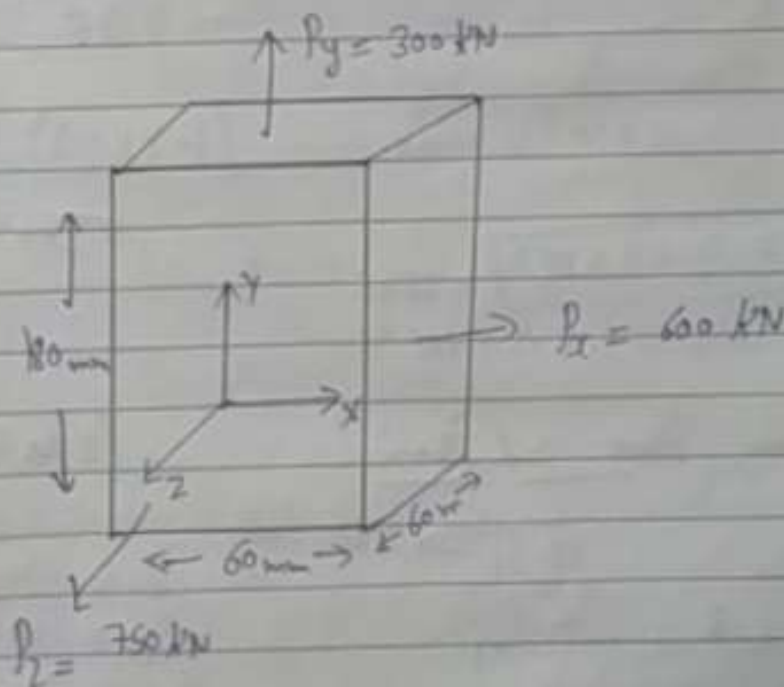 Py = 300 kN
Y
180mm
Px = 600 kN
X
Z
60mm
60m
Pz = 750 kN